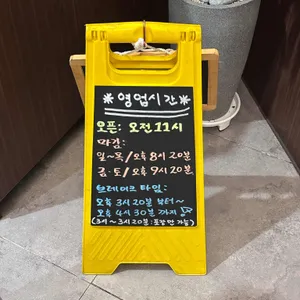 ※영업시간※
오픈: 오전 11시
마감:
일~목/오후 8시 20분
금·토/오후 9시 20분
브레이크 타임:
오후 3시 20분 부터~
오후 4시 30분 까지
(3시~3시 20분:포장만 가능)